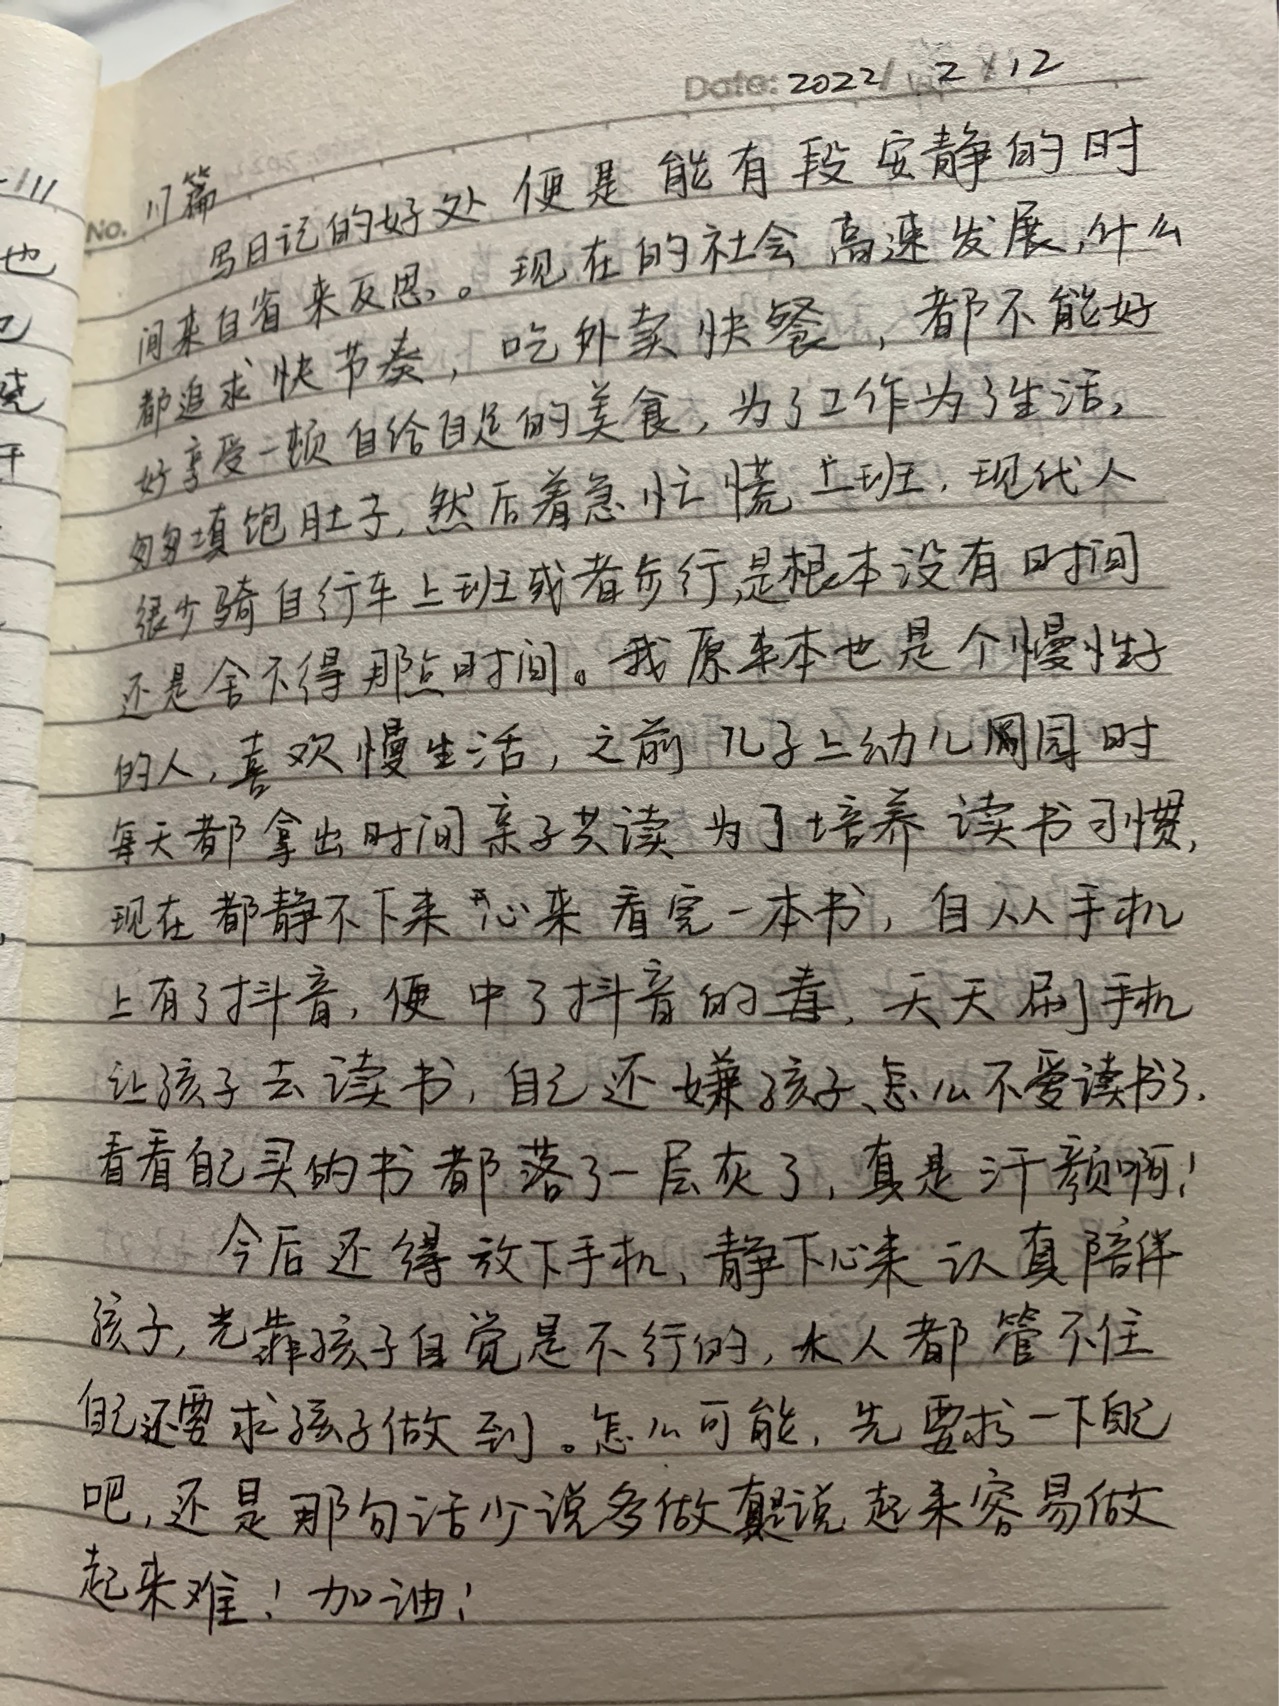 Date: 2022/2/12
No. 117篇
写日记的好处便是能有段安静的时
间来自省来反思。现在的社会高速发展,什么
都追求快节奏,吃外卖快餐,都不能好
好享受一顿自给自足的美食,为了工作为了生活,
匆匆填饱肚子,然后着急忙慌上班,现代人
很少骑自行车上班或者步行,是根本没有时间
还是舍不得那点时间。我原来本也是个慢性子
的人,喜欢慢生活,之前儿子上幼儿园时
每天都拿出时间亲子共读为了培养读书习惯,
现在都静不下来心来看完一本书,自从手机
上有了抖音,便中了抖音的毒,天天刷手机
让孩子去读书,自己还嫌孩子、怎么不爱读书了.
看看自己买的书都落了一层灰了,真是汗颜啊!
今后还得放下手机、静下心来认真陪伴
孩子,光靠孩子自觉是不行的,大人都管不住
自己还要求孩子做到。怎么可能,先要求一下自己
吧,还是那句话少说多做真是说起来容易做
起来难!加油!
也